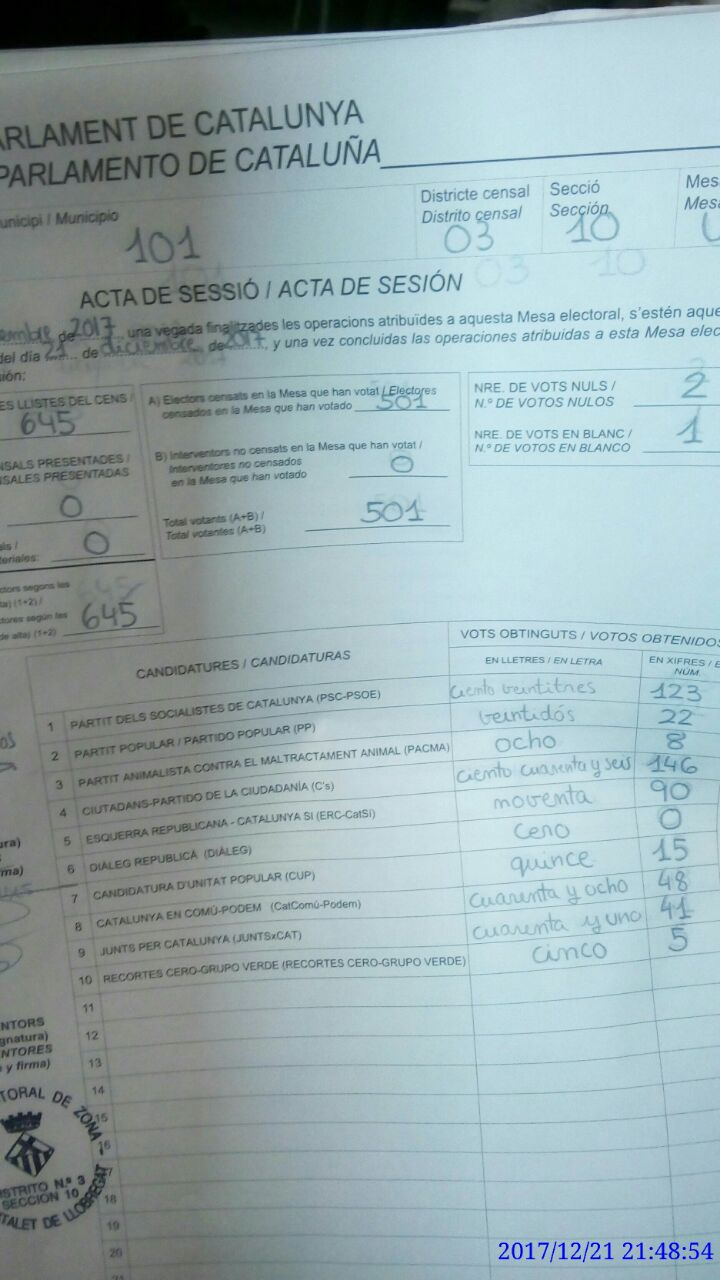 ARLAMENT DE CATALUNYA
PARLAMENTO DE CATALUÑA
unicipi / Municipio
101
Districte censal
Distrito censal
03
Secció
Sección
10
Mes
Mesa
U
ACTA DE SESSIÓ / ACTA DE SESIÓN
embre de 2017, una vegada finalitzades les operacions atribuïdes a aquesta Mesa electoral, s'estén aque
del día 21 de diciembre de 2017, y una vez concluidas las operaciones atribuidas a esta Mesa elec
sión:
ES LLISTES DEL CENS /
645
NSALS PRESENTADES /
SALES PRESENTADAS
0
als /
teriales: 0
ctors segons les
ta) (1+2) /
ctores según las
de alta) (1+2) 645
A) Electors censats en la Mesa que han votat / Electores
censados en la Mesa que han votado 501
B) Interventors no censats en la Mesa que han votat /
Interventores no censados
en la Mesa que han votado 0
Total votants (A+B) /
Total votantes (A+B) 501
NRE. DE VOTS NULS /
N.º DE VOTOS NULOS 2
NRE. DE VOTS EN BLANC /
N.º DE VOTOS EN BLANCO 1
CANDIDATURES / CANDIDATURAS
VOTS OBTINGUTS / VOTOS OBTENIDOS
EN LLETRES / EN LETRA
EN XIFRES / E
NÚM.
1 PARTIT DELS SOCIALISTES DE CATALUNYA (PSC-PSOE) ciento veintitres 123
2 PARTIT POPULAR / PARTIDO POPULAR (PP) veintidós 22
3 PARTIT ANIMALISTA CONTRA EL MALTRACTAMENT ANIMAL (PACMA) ocho 8
4 CIUTADANS-PARTIDO DE LA CIUDADANÍA (C's) ciento cuarenta y seis 146
5 ESQUERRA REPUBLICANA - CATALUNYA SI (ERC-CatSI) noventa 90
6 DIÀLEG REPUBLICÀ (DIÀLEG) cero 0
7 CANDIDATURA D'UNITAT POPULAR (CUP) quince 15
8 CATALUNYA EN COMÚ-PODEM (CatComú-Podem) cuarenta y ocho 48
9 JUNTS PER CATALUNYA (JUNTSxCAT) cuarenta y uno 41
10 RECORTES CERO-GRUPO VERDE (RECORTES CERO-GRUPO VERDE) cinco 5
11
12
13
14
15
16
17
18
19
20
21
ura)
ma)
NTORS
gnatura)
NTORES
e y firma)
TORAL DE ZONA
STRITO N.º 3
SECCIÓN 10
TALET DE LLOBREGAT
2017/12/21 21:48:54